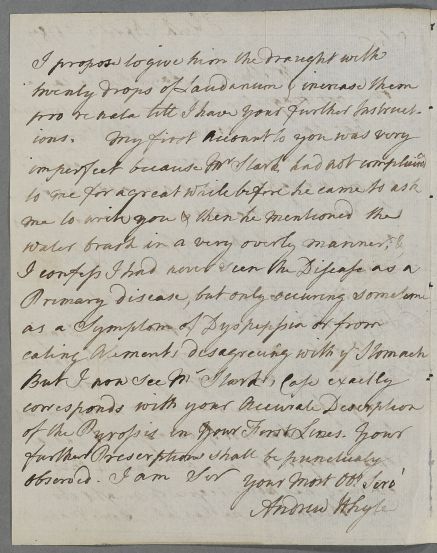 I propose to give him the draught with
twenty drops of Laudanum & increase them
pro re nata till I have your further Instruct-
ions. My first Account to you was very
imperfect because Mr Stark had not complained
to me for a great while before he came to ask
me to write you & then he mentioned the
water brash in a very overly manner; &
I confess I had never seen the Disease as a
Primary disease, but only occuring sometime
as a Symptom of Dyspeppia or from
eating Aliments disagreeing with ye Stomach
But I now see Mr Stark's Case exactly
corresponds with your Accurate Description
of the Pyrosis in your First Lines. Your
further Prescription shall be punctualy
observed. I am Sir your most Obt Servt
Andrew Whyte